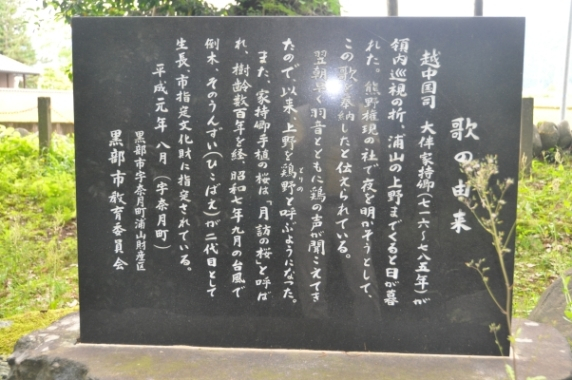 歌の由来
越中国司 大伴家持卿(七一六～七八五年)が
領内巡視の折、浦山の上野までくると日が暮
れた。熊野権現の社で夜を明かそうとして、
この歌を奉納したと伝えられている。
翌朝早く羽音とともに鶏の声が聞こえてき
たので、以来、上野を鶏野と呼ぶようになった。
とりの
また、家持卿手植の桜は「月訪の桜」と呼ば
れ、樹齢数百年を経、昭和七年九月の台風で
倒木、そのうんずい(ひこばえ)が二代目として
生長、市指定文化財に指定されている。
平成元年 八月(宇奈月町)
黒部市宇奈月町浦山財産区
黒部市教育委員会